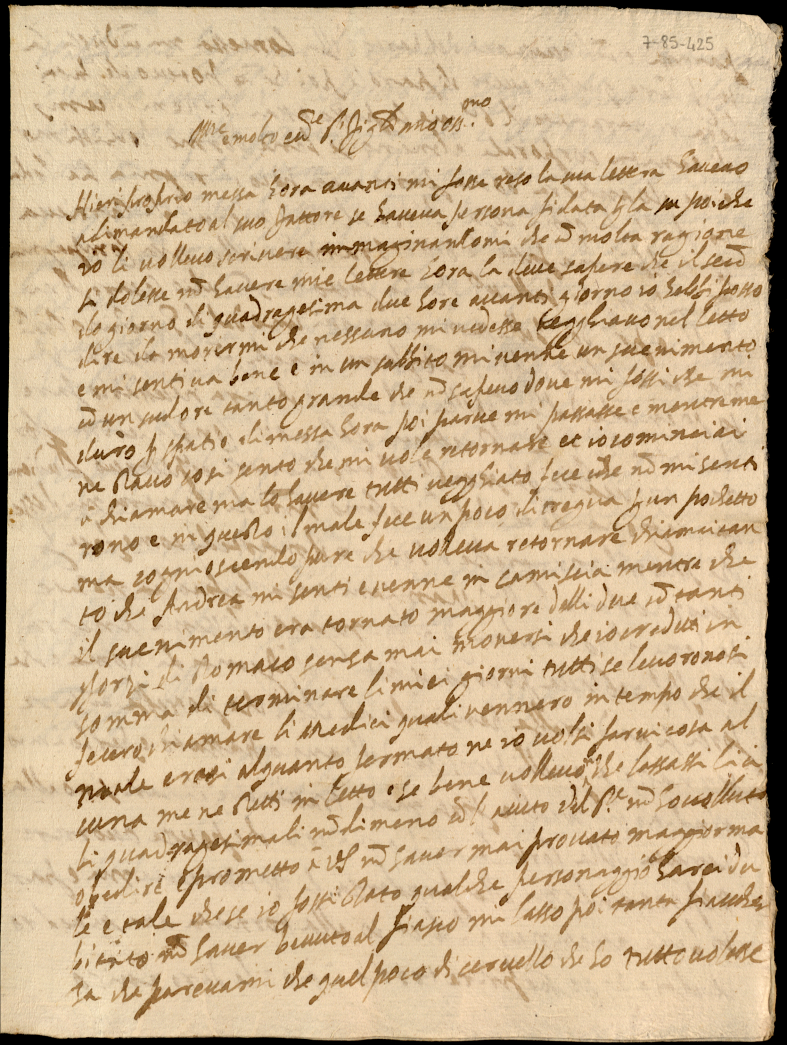 7-85-425
Ill.re e molto ecc.te S.r Sig.r mio oss.mo
Hieri proprio messa hora avanti mi fosse reso la sua lettera havevo
adimandato al suo fattore se haveva persona fidata p la poiche
io li vollevo scrivere immaginandomi che cō molta ragione
si dolesse nō havere mie lettere hora la deve sapere che il secō
do giorno di quadragesima due hore avanti giorno io posso
dire da morermi che nessuno mi vedesse vegghiavo nel letto
e mi sentiva bene e in un subbito mi venne un svenimento
cō un sudore tanto grande che nō sapevo dove mi fossi che mi
durò p spatio di messa hora poi parve mi passasse e mentre me
ne stavo così sento che mi vole retornare et io cominciai
à chiamare ma lo havere tutti vegghiato fece che nō mi senti
rono e in questo il male fece un poco di tregua p un pochetto
ma cognioscendo pure che volleva retornare chiamai tan
to che Andrea mi senti e venne in camiscia mentre che
il svenimento era tornato maggiore delli due cō tanti
sforzi di stomaco senza mai moversi che io credetti in
somma di terminare li miei giorni tutti se levorono si
fecero chiamare li Medici quali vennero in tempo che il
male erasi alquanto fermato ne io volsi farvi cosa al
cuna me ne stetti in letto e se bene vollevō che lassassi li ci
bi quadragesimali nōdimeno cō l'aiuto del S.re nō ho volluto
obedire e prometto à VS nō haver mai provato maggior ma
le e tale che se io fossi stato qualche personaggio harei du
bitato nō haver bevuto al fiasco mi lasso poi tanta fiacchez
za che parevami che quel poco di cervello che ho tutto volesse